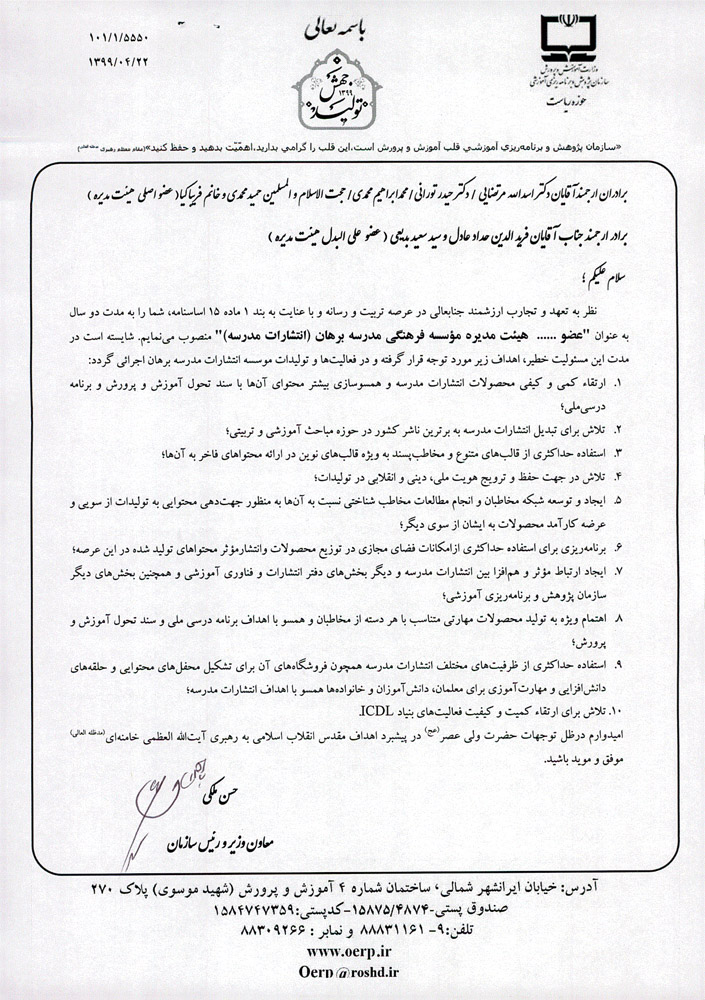 باسمه تعالی
۱۰۱/۱/۵۵۵۰
۱۳۹۹/۰۴/۲۲
جهش
تولید
۱۳۹۹
وزارت آموزش و پرورش
سازمان پژوهش و برنامه ریزی آموزشی
حوزه ریاست
«سازمان پژوهش و برنامه‌ریزی آموزشی قلب آموزش و پرورش است،این قلب را گرامی بدارید،اهمّیّت بدهید و حفظ کنید»(مقام معظم رهبری مدظله العالی)
برادران ارجمند آقایان دکتر اسدالله مرتضایی / دکتر حیدر تورانی / محمدابراهیم محمدی / حجت الاسلام و المسلمین حمید محمدی و خانم فریبا کیا( عضو اصلی هیئت مدیره )
برادر ارجمند جناب آقایان فریدالدین حداد عادل و سید سعید بدیعی ( عضو علی البدل هیئت مدیره )
سلام علیکم ؛
نظر به تعهد و تجارب ارزشمند جنابعالی در عرصه تربیت و رسانه و با عنایت به بند ۱ ماده ۱۵ اساسنامه، شما را به مدت دو سال
به عنوان "عضو ...... هیئت مدیره مؤسسه فرهنگی مدرسه برهان (انتشارات مدرسه)" منصوب می‌نمایم. شایسته است در
مدت این مسئولیت خطیر، اهداف زیر مورد توجه قرار گرفته و در فعالیت‌ها و تولیدات موسسه انتشارات مدرسه برهان اجرائی گردد:
۱. ارتقاء کمی و کیفی محصولات انتشارات مدرسه و همسوسازی بیشتر محتوای آن‌ها با سند تحول آموزش و پرورش و برنامه
درسی‌ملی؛
۲. تلاش برای تبدیل انتشارات مدرسه به برترین ناشر کشور در حوزه مباحث آموزشی و تربیتی؛
۳. استفاده حداکثری از قالب‌های متنوع و مخاطب‌پسند به ویژه قالب‌های نوین در ارائه محتواهای فاخر به آن‌ها؛
۴. تلاش در جهت حفظ و ترویج هویت ملی، دینی و انقلابی در تولیدات؛
۵. ایجاد و توسعه شبکه مخاطبان و انجام مطالعات مخاطب شناختی نسبت به آن‌ها به منظور جهت‌دهی محتوایی به تولیدات از سویی و
عرضه کارآمد محصولات به ایشان از سوی دیگر؛
۶. برنامه‌ریزی برای استفاده حداکثری ازامکانات فضای مجازی در توزیع محصولات وانتشارمؤثر محتواهای تولید شده در این عرصه؛
۷. ایجاد ارتباط مؤثر و هم‌افزا بین انتشارات مدرسه و دیگر بخش‌های دفتر انتشارات و فناوری آموزشی و همچنین بخش‌های دیگر
سازمان پژوهش و برنامه‌ریزی آموزشی؛
۸. اهتمام ویژه به تولید محصولات مهارتی متناسب با هر دسته از مخاطبان و همسو با اهداف برنامه درسی ملی و سند تحول آموزش و
پرورش؛
۹. استفاده حداکثری از ظرفیت‌های مختلف انتشارات مدرسه همچون فروشگاه‌های آن برای تشکیل محفل‌های محتوایی و حلقه‌های
دانش‌افزایی و مهارت‌آموزی برای معلمان، دانش‌آموزان و خانواده‌ها همسو با اهداف انتشارات مدرسه؛
۱۰. تلاش برای ارتقاء کمیت و کیفیت فعالیت‌های بنیاد ICDL.
امیدوارم درظل توجهات حضرت ولی عصر(عج) در پیشبرد اهداف مقدس انقلاب اسلامی به رهبری آیت‌الله العظمی خامنه‌ای(مدظله العالی)
موفق و موید باشید.
حسن ملکی
معاون وزیر و رئیس سازمان
آدرس: خیابان ایرانشهر شمالی، ساختمان شماره ۴ آموزش و پرورش (شهید موسوی) پلاک ۲۷۰
صندوق پستی-۱۵۸۷۵/۴۸۷۴-کدپستی:۱۵۸۴۷۴۷۳۵۹
تلفن:۹-۸۸۸۳۱۱۶۱ و نمابر : ۸۸۳۰۹۲۶۶
www.oerp.ir
Oerp@roshd.ir